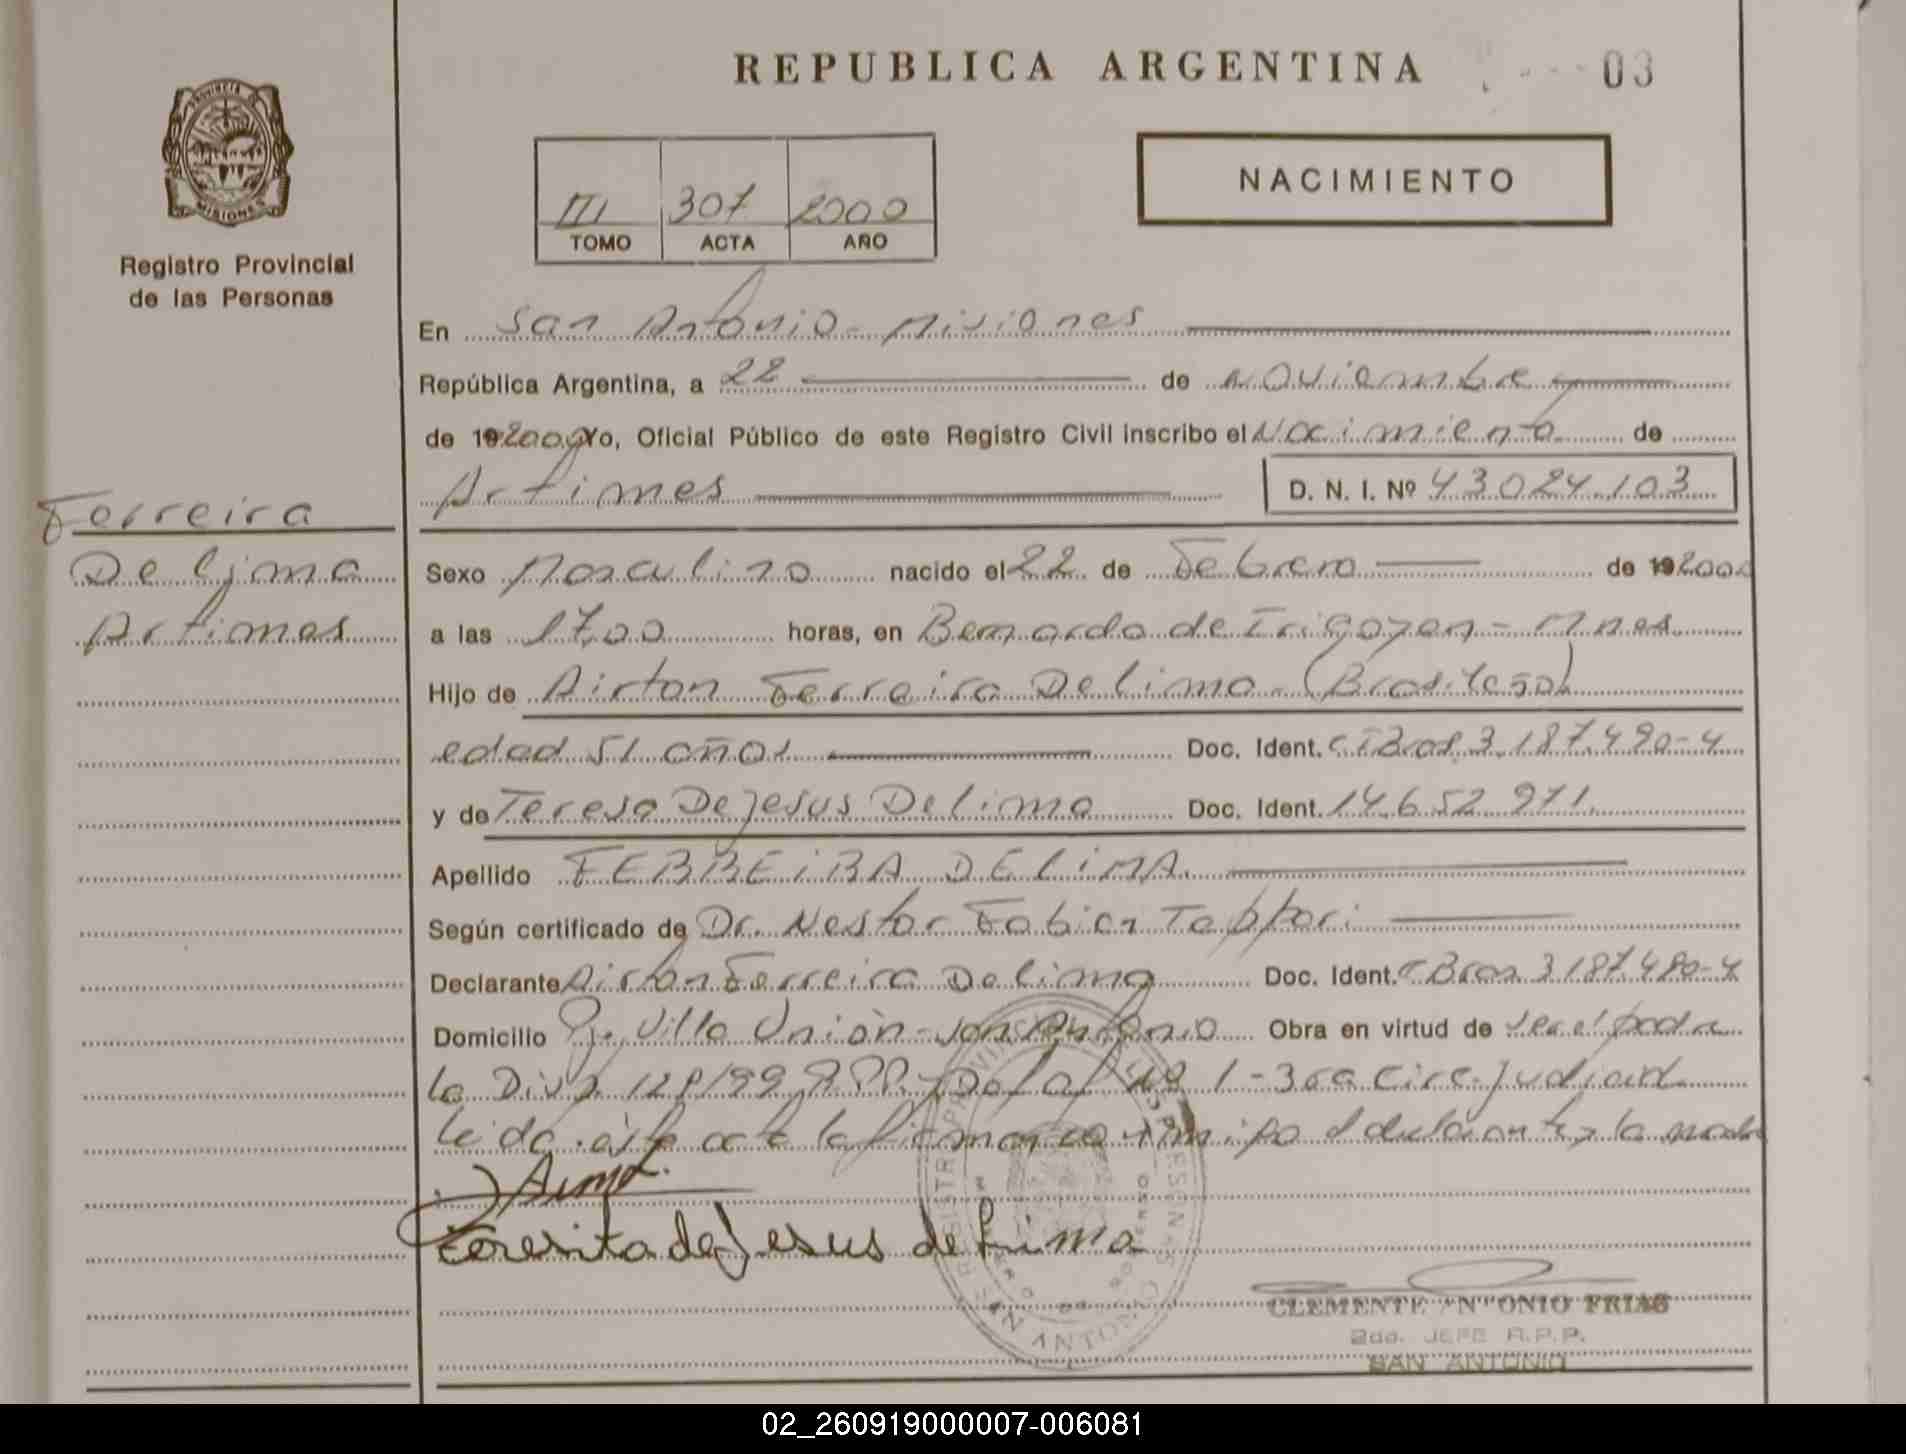 REPUBLICA ARGENTINA
03
PROVINCIA DE
MISIONES
Registro Provincial
de las Personas
III 307 2000
TOMO ACTA AÑO
NACIMIENTO
En San Antonio - Misiones
República Argentina, a 22 de noviembre
de 19 2000 Yo, Oficial Público de este Registro Civil inscribo el Nacimiento de
Artimes D. N. I. Nº 43024.103
Ferreira
De Lima
Artimes
Sexo Masculino nacido el 22 de Febrero de 19 2000
a las 17.00 horas, en Bernardo de Irigoyen - Mnes
Hijo de Airton Ferreira De Lima - (Brasileño)
edad 51 años Doc. Ident. CI Bras 3.187.490-4
y de Teresa De Jesus De Lima Doc. Ident. 14.652.971
Apellido FERREIRA DE LIMA
Según certificado de Dr. Nestor Fabian
Declarante Airton Ferreira De Lima Doc. Ident. Bras 3187.490-4
Domicilio Villa Unión - San Antonio Obra en virtud de
la 128/99 Nº 1 - 3ra Circ. Judicial
Leida ésta acta la firman conmigo el declarante y la madre
Lima
Teresita de Jesus de Lima
SAN ANTONIO
CLEMENTE ANTONIO FRIAS
2do. JEFE R.P.P.
SAN ANTONIO
02_260919000007-006081